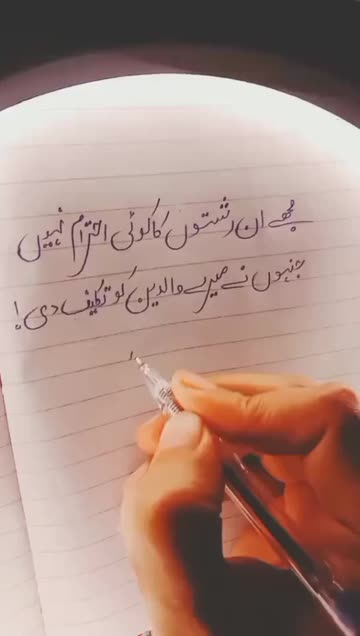 مجھے ان رشتوں کا کوئی احترام نہیں
جنہوں نے میرے والدین کو تکلیف دی!